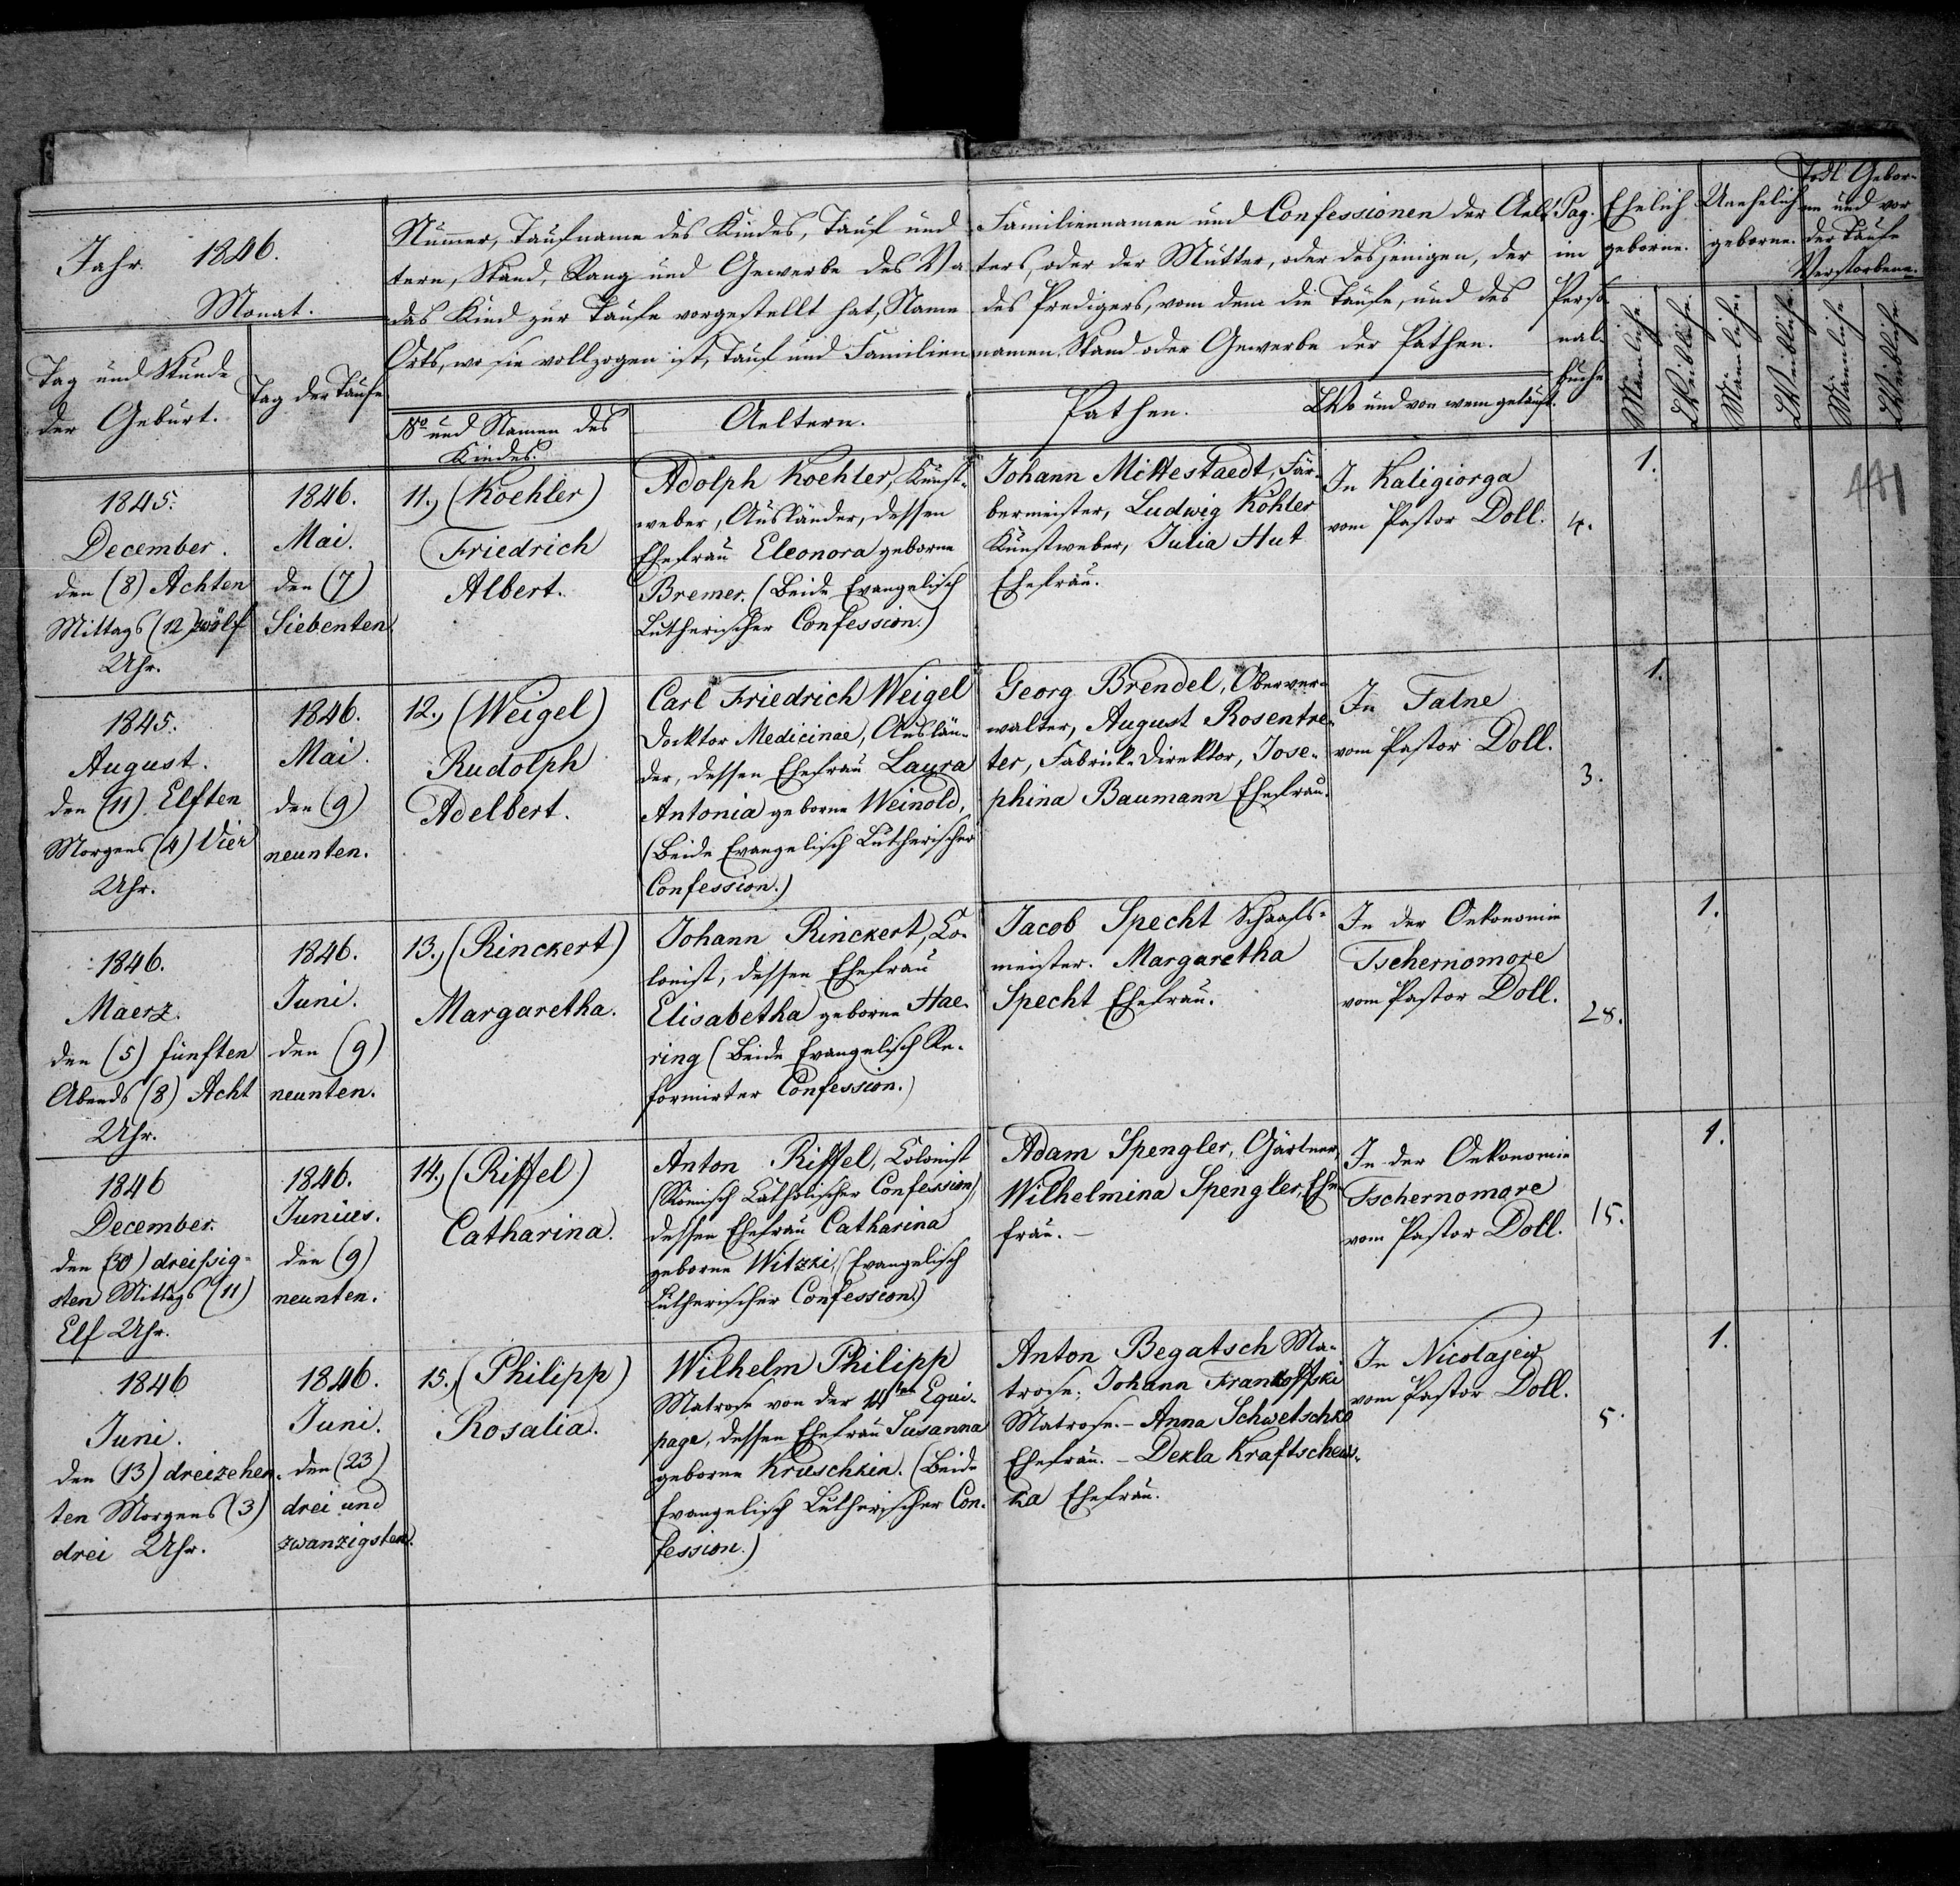 Jahr. 1846.
Monat.
Tag und Stunde
der Geburt.
Tag der Taufe
Nummer, Taufname des Kindes, Tauf und Familiennamen und Confessionen der Ael-
tern, Stand, Rang und Gewerbe des Vaters, oder der Mutter, oder desjenigen, der
das Kind zur Taufe vorgestellt hat, Name des Predigers, vom dem die Taufe, und des
Orts, wo sie vollzogen ist, Tauf und Familiennamen, Stand oder Gewerbe der Pathen.
No und Namen des
Kindes.
Aeltern.
Pathen.
Wo und von wem getauft.
Pag.
im
Perso-
nal-
buche
Ehelich
geborne.
Unehelich
geborne.
Todt Gebor-
ne und vor
der Taufe
Verstorbene.
Männliche
Weibliche
Männliche
Weibliche
Männliche
Weibliche
1845.
December.
den (8) Achten
Mittags (12) zwölf
Uhr.
1846.
Mai.
den (7)
Siebenten
11., (Koehler)
Friedrich
Albert.
Adolph Koehler, Kunst-
weber, Ausländer, dessen
Ehefrau Eleonora geborne
Bremer. (Beide Evangelisch
Lutherischer Confession.)
Johann Mittestaedt, Fär-
bermeister, Ludwig Köhler
Kunstweber, Julia Hut
Ehefrau.
In Kaligiorga
vom Pastor Doll.
4.
1.
441
1845.
August.
den (11) Elften
Morgens (4) Vier
Uhr.
1846.
Mai.
den (9)
neunten.
12., (Weigel)
Rudolph
Adelbert.
Carl Friedrich Weigel
Docktor Medicinae, Auslän-
der, dessen Ehefrau Laura
Antonia geborne Weinold,
(Beide Evangelisch Lutherischer
Confession.)
Georg Brendel, Oberver-
walter, August Rosentre-
ter, Fabrick-Direktor, Jose-
phina Baumann Ehefrau.
In Talne
vom Pastor Doll.
3.
1.
1846.
Maerz.
den (5) fünften
Abends (8) Acht
Uhr.
1846.
Juni.
den (9)
neunten.
13., (Rinckert)
Margaretha.
Johann Rinckert, Co-
lonist, dessen Ehefrau
Elisabetha geborne Hae-
ring (Beide Evangelisch Re-
formirter Confession.)
Jacob Specht Schaafs-
meister. Margaretha
Specht Ehefrau.
In der Oekonomie
Tschernomore
vom Pastor Doll.
28.
1.
1846
December.
den (30) dreissig-
sten Mittags (11)
Elf Uhr.
1846.
Junius.
den (9)
neunten.
14., (Riffel)
Catharina.
Anton Riffel, Colonist
(Römisch Catholischer Confession)
dessen Ehefrau Catharina
geborne Witzki, (Evangelisch
Lutherischer Confession.)
Adam Spengler, Gärtner,
Wilhelmina Spengler, Ehe-
frau. -
In der Oekonomie
Tschernomore
vom Pastor Doll.
15.
1.
1846
Juni.
den (13) dreizehen-
ten Morgens (3)
drei Uhr.
1846.
Juni.
den (23)
drei und
zwanzigsten.
15., (Philipp)
Rosalia.
Wilhelm Philipp
Matrose von der 14ten Equi-
page, dessen Ehefrau Susanna
geborne Krüschkin. (Beide
Evangelisch Lutherischer Con-
fession.)
Anton Begatsch Ma-
trose; Johann
Matrose. - Anna Schwetschko
Ehefrau. - Dekla Kraftschen-
ka Ehefrau.
In Nicolajew
vom Pastor Doll.
5.
1.